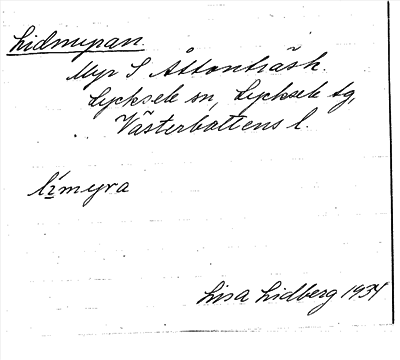 Lidmyran.
Myr S Åttonträsk.
Lycksele sn, Lycksele tg,
Västerbottens l.
límyra
Lisa Lidberg 1934